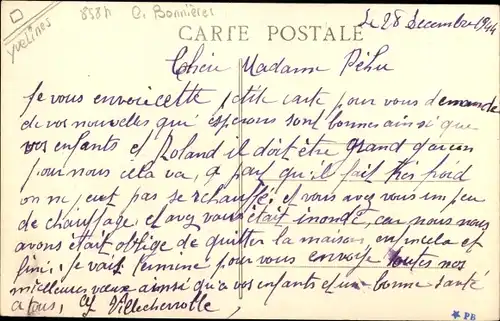 Yvelines
8584
C. Bonnières
CARTE POSTALE
Le 28 Decembre 1944
Chere Madame Pehu
Je vous envoie cette petite carte pour vous demande
de vos nouvelles que esperons sont bonnes ainsi que
vos enfants et Roland il doit être grand garcon
pour nous cela va, a part qu'il fait tres froid
on ne peut pas se rchauffé, et vous avez vous un peu
de chauffage et avez vous était inondé, car nous nous
avons était obligé de quitter la maison enfin cela et
fini. Je vais termine pour vous envoye toutes nos
meilleures vœux ainsi qu'a vos enfants et une bonne santé
a tous,
PB